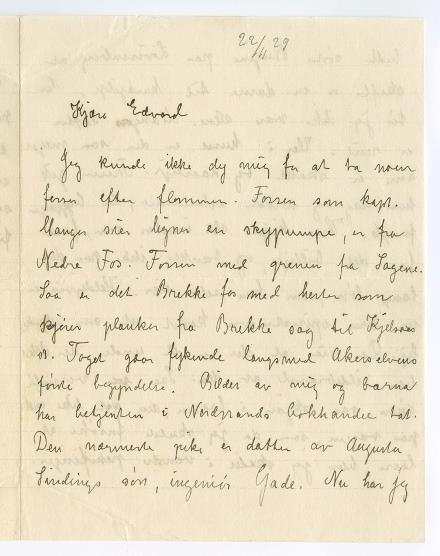 22/4 29
Kjære Edvard
Jeg kunde ikke dy mig for at ta noen
fosser efter flommen. Fossen som kapt.
Unger sier ligner en skypumpe, er fra
Nedre Fos. Fossen med grenen fra Sagene.
Saa er det Brekke fos med hester som
kjører planker fra Brekke sag til Kjelsaas
st. Toget gaar fykende langsmed Akerselvens
første begyndelse. Bilder av mig og barna
har betjenten i Nordstrands bokhandel tat.
Den nærmeste pike er datter av Augusta
Sindings søn, ingeniør Gade. Nu har jeg